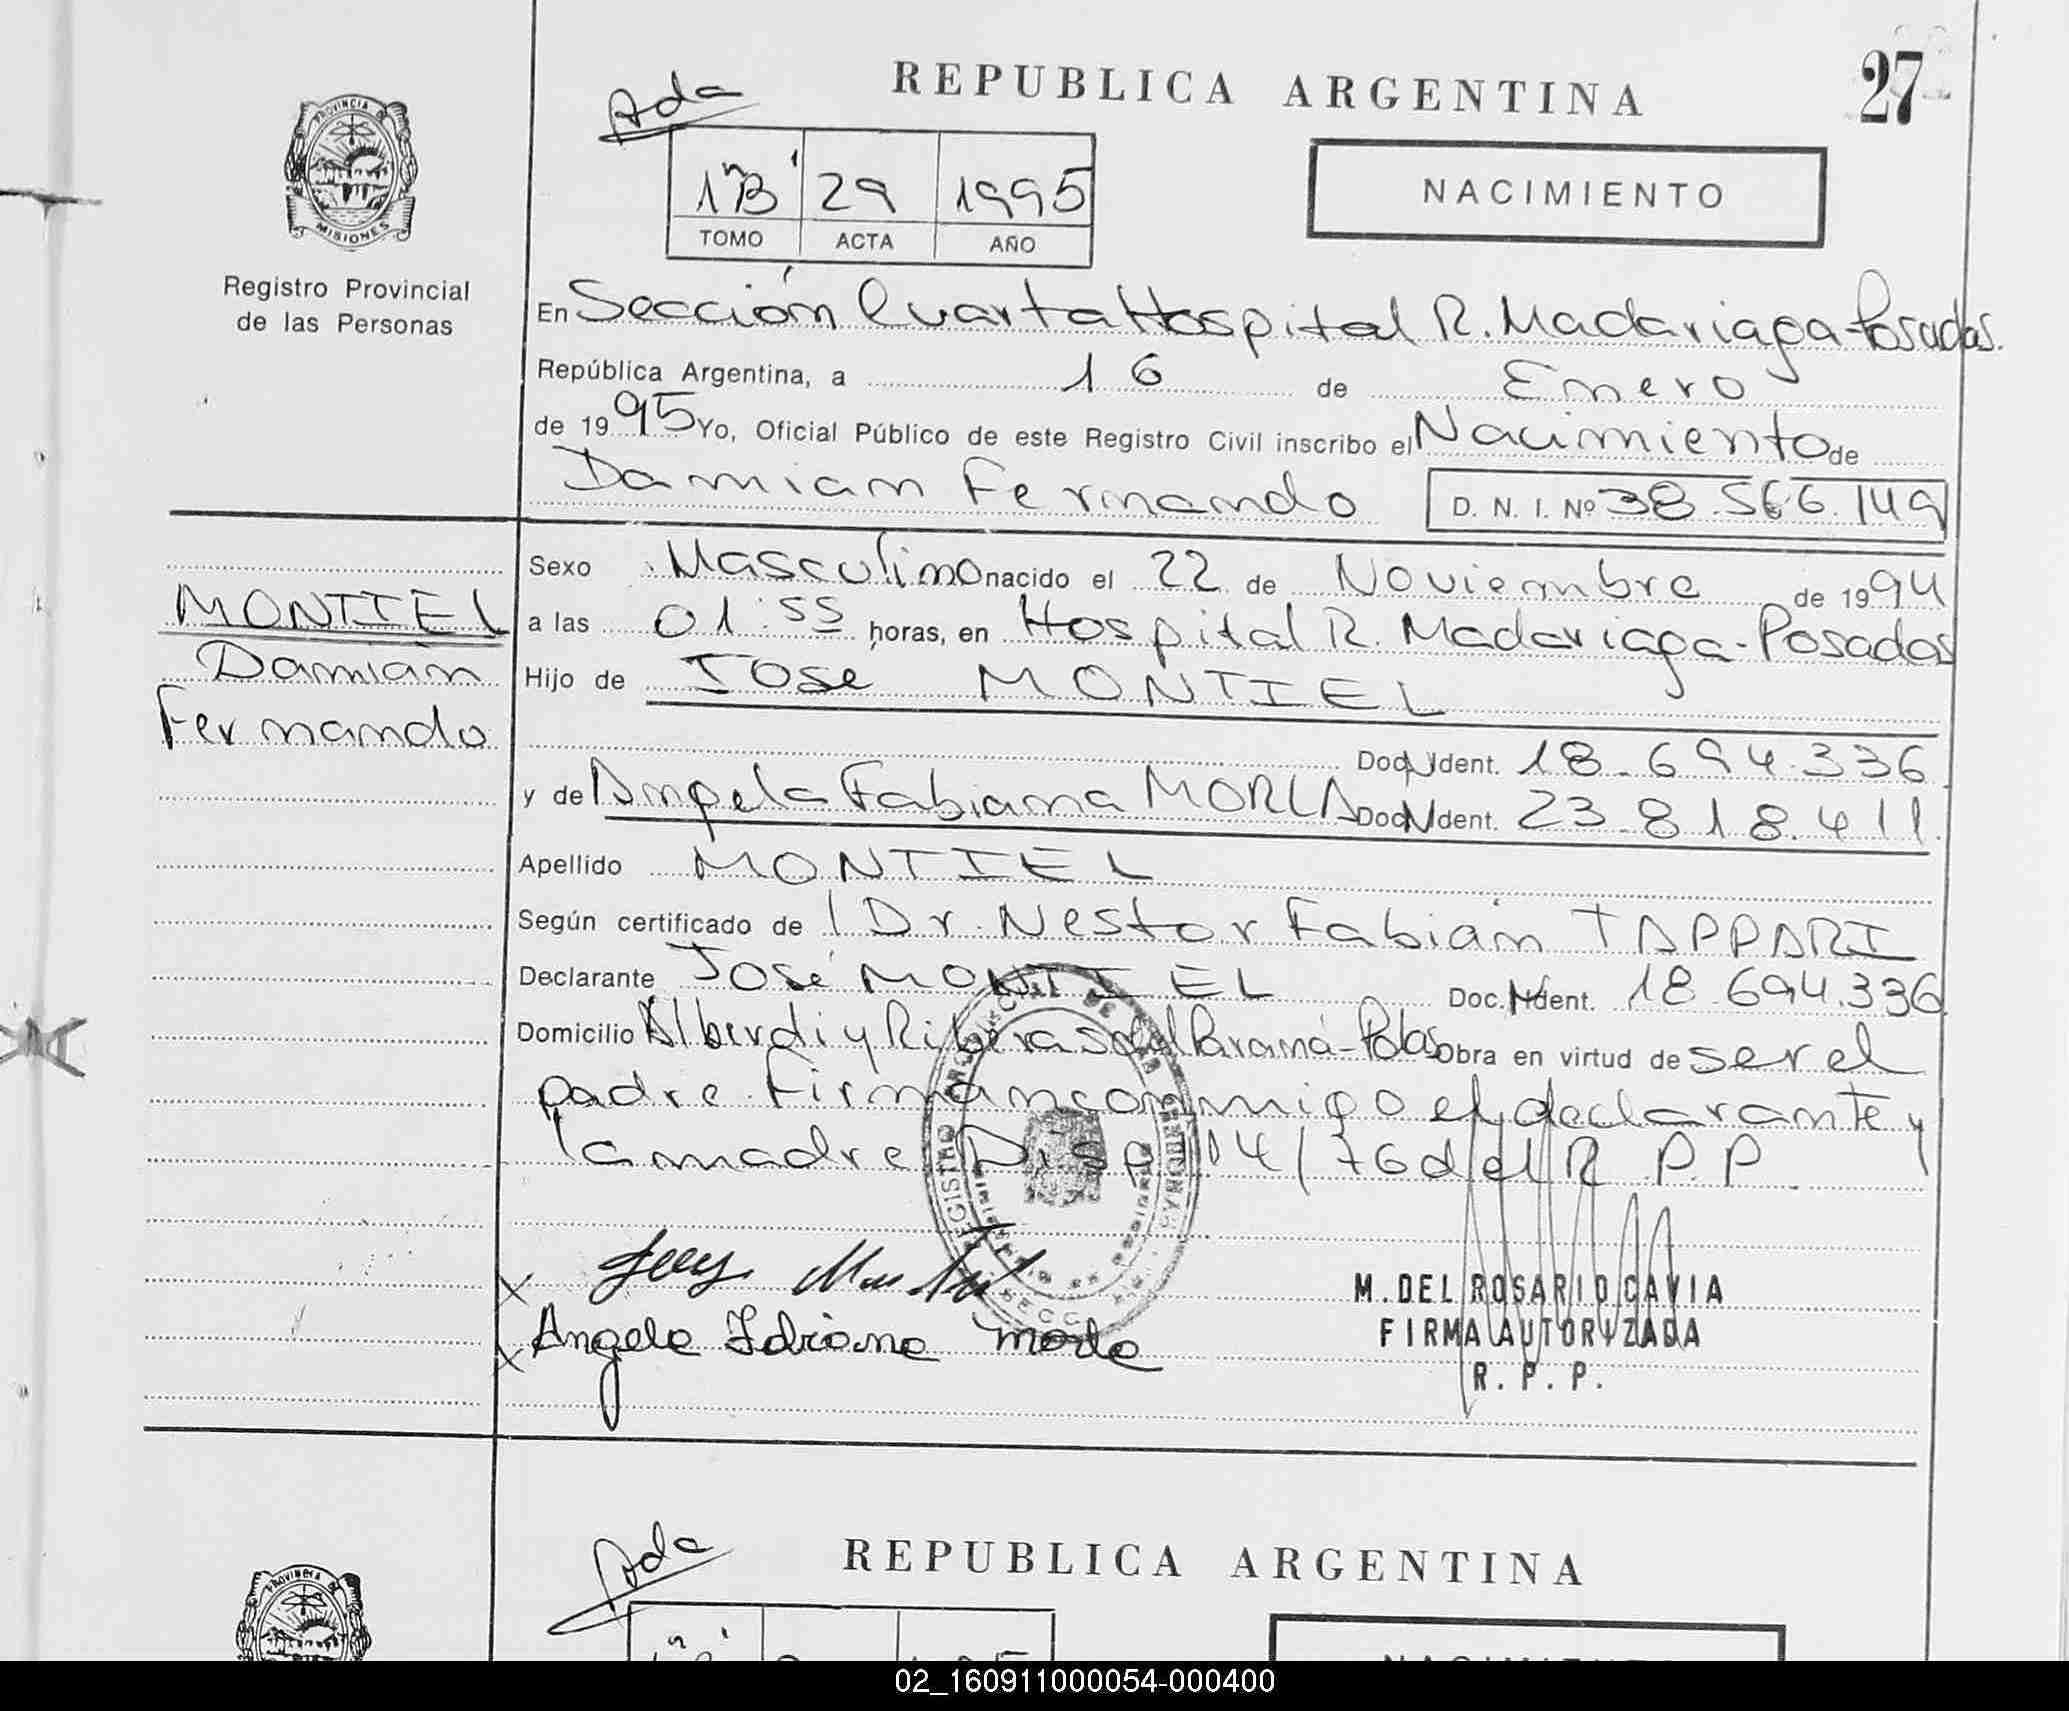 27
REPUBLICA ARGENTINA
Ada
PROVINCIA DE
MISIONES
Registro Provincial
de las Personas
1"B" 29 1995
TOMO ACTA AÑO
NACIMIENTO
En Sección Cuarta Hospital R. Madariaga-Posadas.
República Argentina, a 16 de Enero
de 1995 Yo, Oficial Público de este Registro Civil inscribo el Nacimiento de
Damian Fernando D. N. I. Nº 38.566.149
Sexo Masculino nacido el 22 de Noviembre de 1994
MONTIEL
a las 01:55 horas, en Hospital R. Madariaga-Posadas
Damián
Hijo de José MONTIEL
Fernando
Doc N Ident. 18.694.336
y de Angela Fabiana MORLA Doc N Ident. 23.818.411
Apellido MONTIEL
Según certificado de l Dr. Nestor Fabián TAPPARI
Declarante José MONTIEL Doc. N Ident. 18.694.336
Domicilio Alberdi y Riberas del Paraná-Pdas Obra en virtud de ser el
padre. Firman conmigo el declarante y
la madre Disp. 104/76 del R.P.P.
Angela Fabiana Morla
M. DEL ROSARIO CAVIA
FIRMA AUTORIZADA
R. P. P.
REPUBLICA ARGENTINA
Ada
02_160911000054-000400